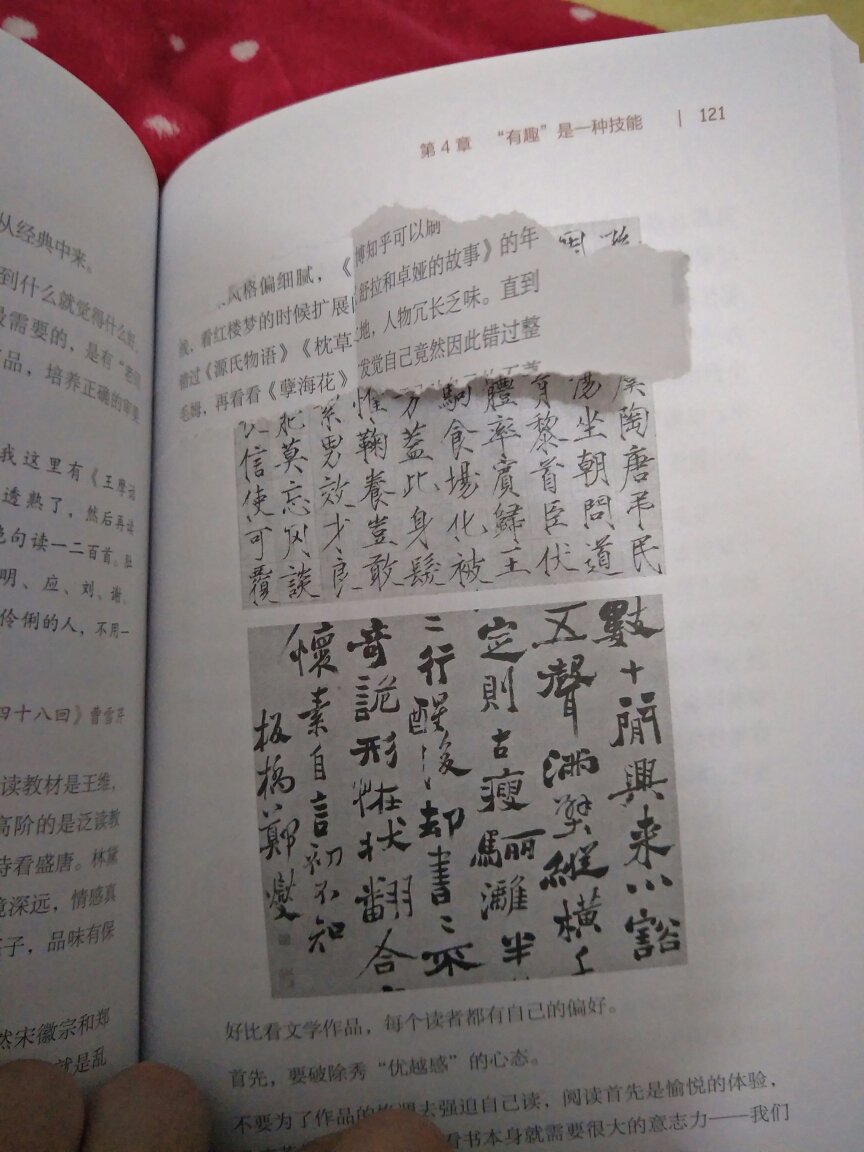 从经典中来。
到什么就觉得什么好。
最需要的，是有“老师
品，培养正确的审美
我这里有《王摩诘
透熟了，然后再读
绝句读一二百首。肚
明、应、刘、谢、
伶俐的人，不用一
四十八回》曹雪芹
读教材是王维，
高阶的是泛读教
诗看盛唐。林黛
境深远，情感真
子，品味有保
然宋徽宗和郑
就是乱
第4章 “有趣”是一种技能 | 121
博知乎可以刷
舒拉和卓娅的故事》的年
地，人物冗长乏味。直到
发觉自己竟然因此错过整
风格偏细腻，《
候，看红楼梦的时候扩展
错过《源氏物语》《枕草
毛姆，再看看《孽海花》
陶唐吊民
坐朝問道
育黎首臣伏
體率賓歸王
駒食場化被
方蓋此身髮
惟鞠養豈敢
男效才良
莫忘罔談
信使可覆
數十間興來小豁
五聲滿壁縱橫千
定則古瘦驪灕半
二行醒後却書書不
奇詭形怪狀翻合
懷素自言初不知
板橋鄭燮
好比看文学作品，每个读者都有自己的偏好。
首先，要破除秀“优越感”的心态。
不要为了作品的格调去强迫自己读，阅读首先是愉悦的体验，
看书本身就需要很大的意志力——我们